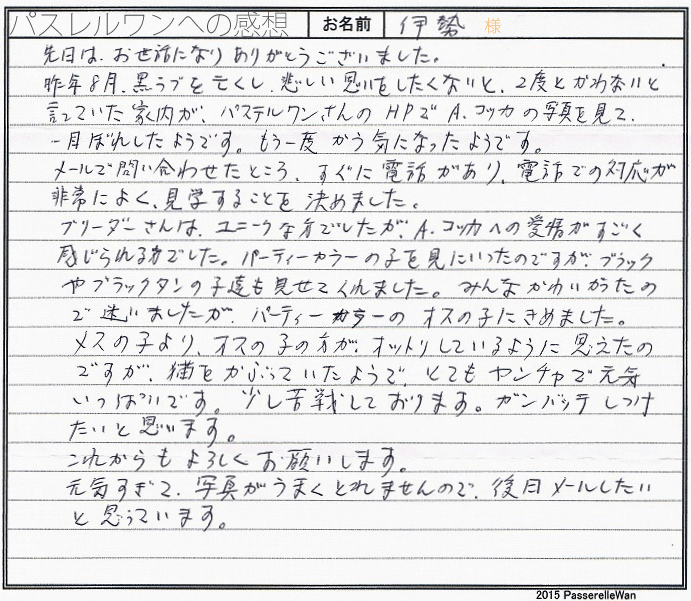 パスレルワンへの感想 お名前 伊勢 様
先日は、お世話になりありがとうございました。
昨年8月、黒ラブを亡くし、悲しい思いをしたくないと、2度とかわないと
言っていた家内が、パステルワンさんのHPでA.コッカの写真を見て、
一目ぼれしたようです。もう一度かう気になったようです。
メールで問い合わせたところ、すぐに電話があり、電話での対応が
非常によく、見学することを決めました。
ブリーダーさんは、ユニークな方でしたが、A.コッカへの愛情がすごく
感じられる方でした。パーティーカラーの子を見にいったのですが、ブラック
やブラックタンの子達も見せてくれました。みんなかわいかったの
で迷いましたが、パーティーカラーのオスの子にきめました。
メスの子より、オスの子の方が、オットリしているように思えたの
ですが、猫をかぶっていたようで、とてもヤンチャで元気
いっぱいです。少し苦戦しております。ガンバッテしつけ
たいと思います。
これからもよろしくお願いします。
元気すぎて、写真がうまくとれませんので、後日メールしたい
と思っています。
2015 PasserelleWan